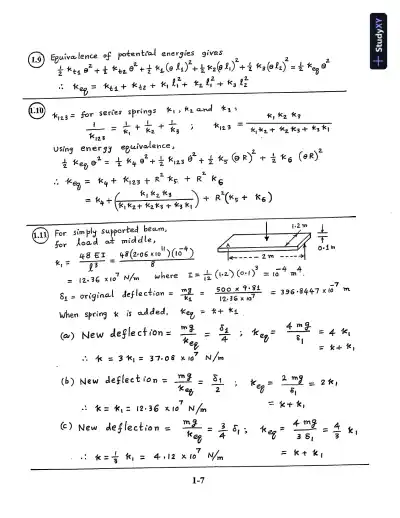 StudyXY
1.9 Equivalence of potential energies gives
½ k_t1 θ² + ½ k_t2 θ² + ½ k₁(θ l₁)² + ½ k₂(θ l₁)² + ½ k₃(θ l₂)² = ½ k_eq θ²
∴ k_eq = k_t1 + k_t2 + k₁ l₁² + k₂ l₁² + k₃ l₂²
1.10 k₁₂₃ = for series springs k₁, k₂ and k₃:
1/k₁₂₃ = 1/k₁ + 1/k₂ + 1/k₃ ; k₁₂₃ = k₁ k₂ k₃ / (k₁k₂ + k₂k₃ + k₃k₁)
Using energy equivalence,
½ k_eq θ² = ½ k₄ θ² + ½ k₁₂₃ θ² + ½ k₅ (θR)² + ½ k₆ (θR)²
∴ k_eq = k₄ + k₁₂₃ + R² k₅ + R² k₆
= k₄ + (k₁ k₂ k₃ / (k₁k₂ + k₂k₃ + k₃k₁)) + R²(k₅ + k₆)
1.11 For simply supported beam,
for load at middle,
1.2 m
0.1 m
2 m
k₁ = 48 EI / l³ = 48(2.06×10¹¹)(10⁻⁴) / 8
= 12.36 ×10⁷ N/m where I = 1/12 (1.2)(0.1)³ = 10⁻⁴ m⁴
δ₁ = original deflection = mg/k₁ = 500 × 9.81 / 12.36 ×10⁷ = 396.8447 ×10⁻⁷ m
When spring k is added, k_eq = k + k₁
(a) New deflection = mg/k_eq = δ₁/4 ; k_eq = 4 mg/δ₁ = 4 k₁
= k + k₁
∴ k = 3 k₁ = 37.08 ×10⁷ N/m
(b) New deflection = mg/k_eq = δ₁/2 ; k_eq = 2 mg/δ₁ = 2 k₁
= k + k₁
∴ k = k₁ = 12.36 ×10⁷ N/m
(c) New deflection = mg/k_eq = 3/4 δ₁ ; k_eq = 4 mg/3 δ₁ = 4/3 k₁
= k + k₁
∴ k = 1/3 k₁ = 4.12 ×10⁷ N/m
1-7